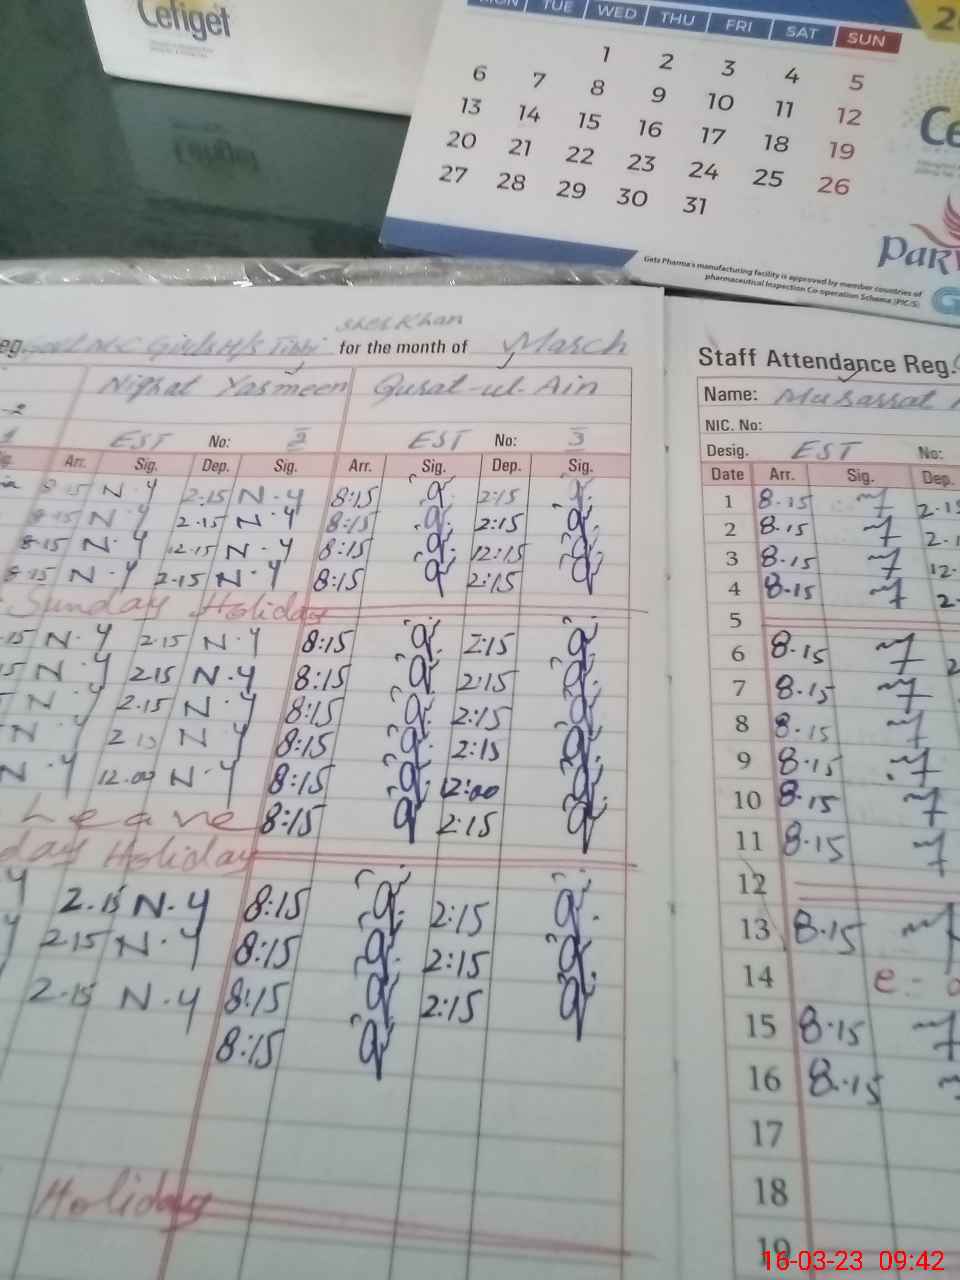 Cefiget
MON TUE WED THU FRI SAT SUN
1 2 3 4 5
6 7 8 9 10 11 12
13 14 15 16 17 18 19
20 21 22 23 24 25 26
27 28 29 30 31
Getz Pharma's manufacturing facility is approved by member countries of
pharmaceutical Inspection Co-operation Scheme (PIC/S)
Sher Khan
for the month of March
Nighat Yasmeen Qurat-ul-Ain
EST No: 2 EST No: 3
Arr. Sig. Dep. Sig. Arr. Sig. Dep. Sig.
8:15 N.Y 2:15 N.Y 8:15 2:15
8:15 N.Y 2.15 N.Y 8:15 2:15
8:15 N.Y 12.15 N.Y 8:15 12:15
8:15 N.Y 2.15 N.Y 8:15 2:15
Sunday Holiday
.15 N.Y 2.15 N.Y 8:15 2:15
15 N.Y 2.15 N.Y 8:15 2:15
N.Y 2.15 N.Y 8:15 2:15
N.Y 2.15 N.Y 8:15 2:15
N.Y 12.00 N.Y 8:15 12:00
Leave 8:15 2:15
day Holiday
Y 2.15 N.Y 8:15 2:15
Y 2.15 N.Y 8:15 2:15
2.15 N.Y 8:15 2:15
8:15
Holiday
Staff Attendance Reg.
Name: Musarrat
NIC. No:
Desig. EST No:
Date Arr. Sig. Dep.
1 8.15 2.15
2 8.15 2.1
3 8.15 12.
4 8.15 2.
5
6 8.15 2
7 8.15
8 8.15
9 8.15
10 8.15
11 8.15
12
13 8.15
14
15 8.15
16 8.15
17
18
19
16-03-23 09:42